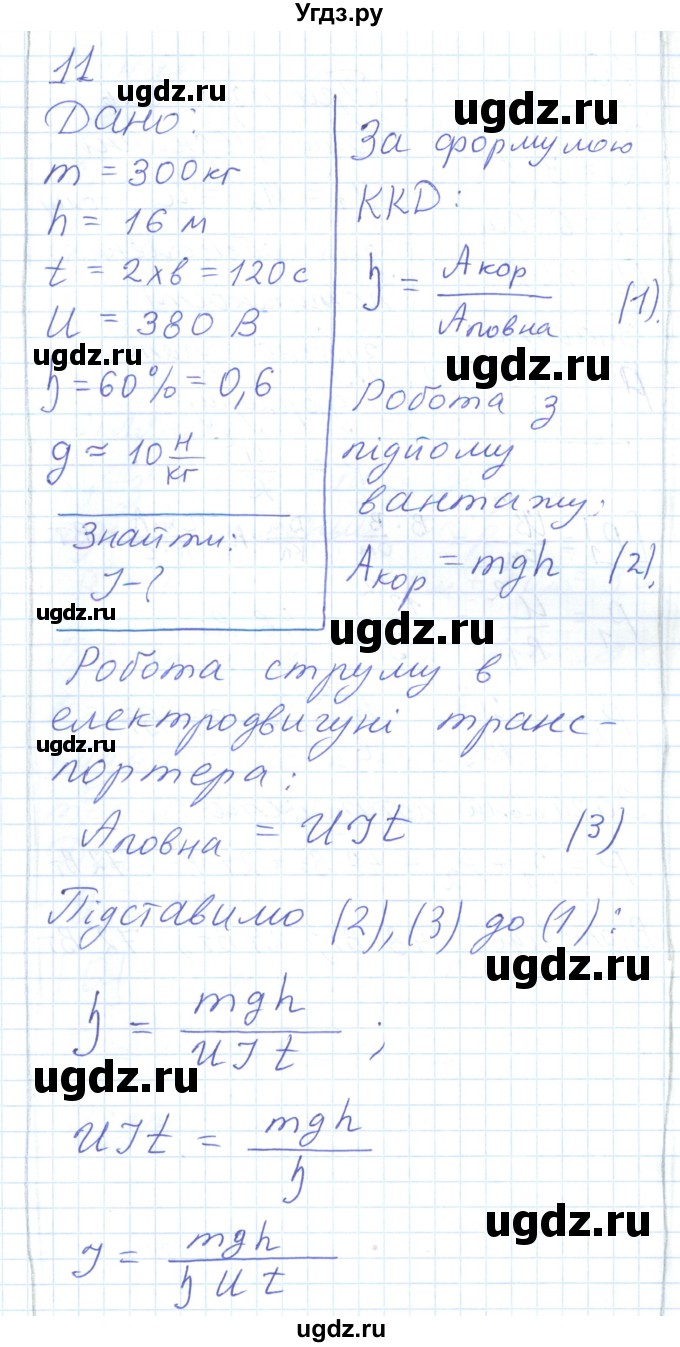 Угдз.ру
11
ugdz.ru
Дано:
m = 300 кг
h = 16 м
t = 2 хв = 120 с
U = 380 В
ugdz.ru
η = 60% = 0,6
g ≈ 10 Н/кг
Знайти:
I - ?
ugdz.ru
ugdz.ru
За формулою
ККД:
η = Aкор / Aповна (1).
ugdz.ru
Робота з
підйому
вантажу:
Aкор = mgh (2),
ugdz.ru
Робота струму в
електродвигуні транс-
ugdz.ru
портера:
Aповна = UIt (3)
Підставимо (2), (3) до (1):
ugdz.ru
η = mgh / UIt ;
ugdz.ru
UIt = mgh / η
ugdz.ru
I = mgh / ηUt
ugdz.ru